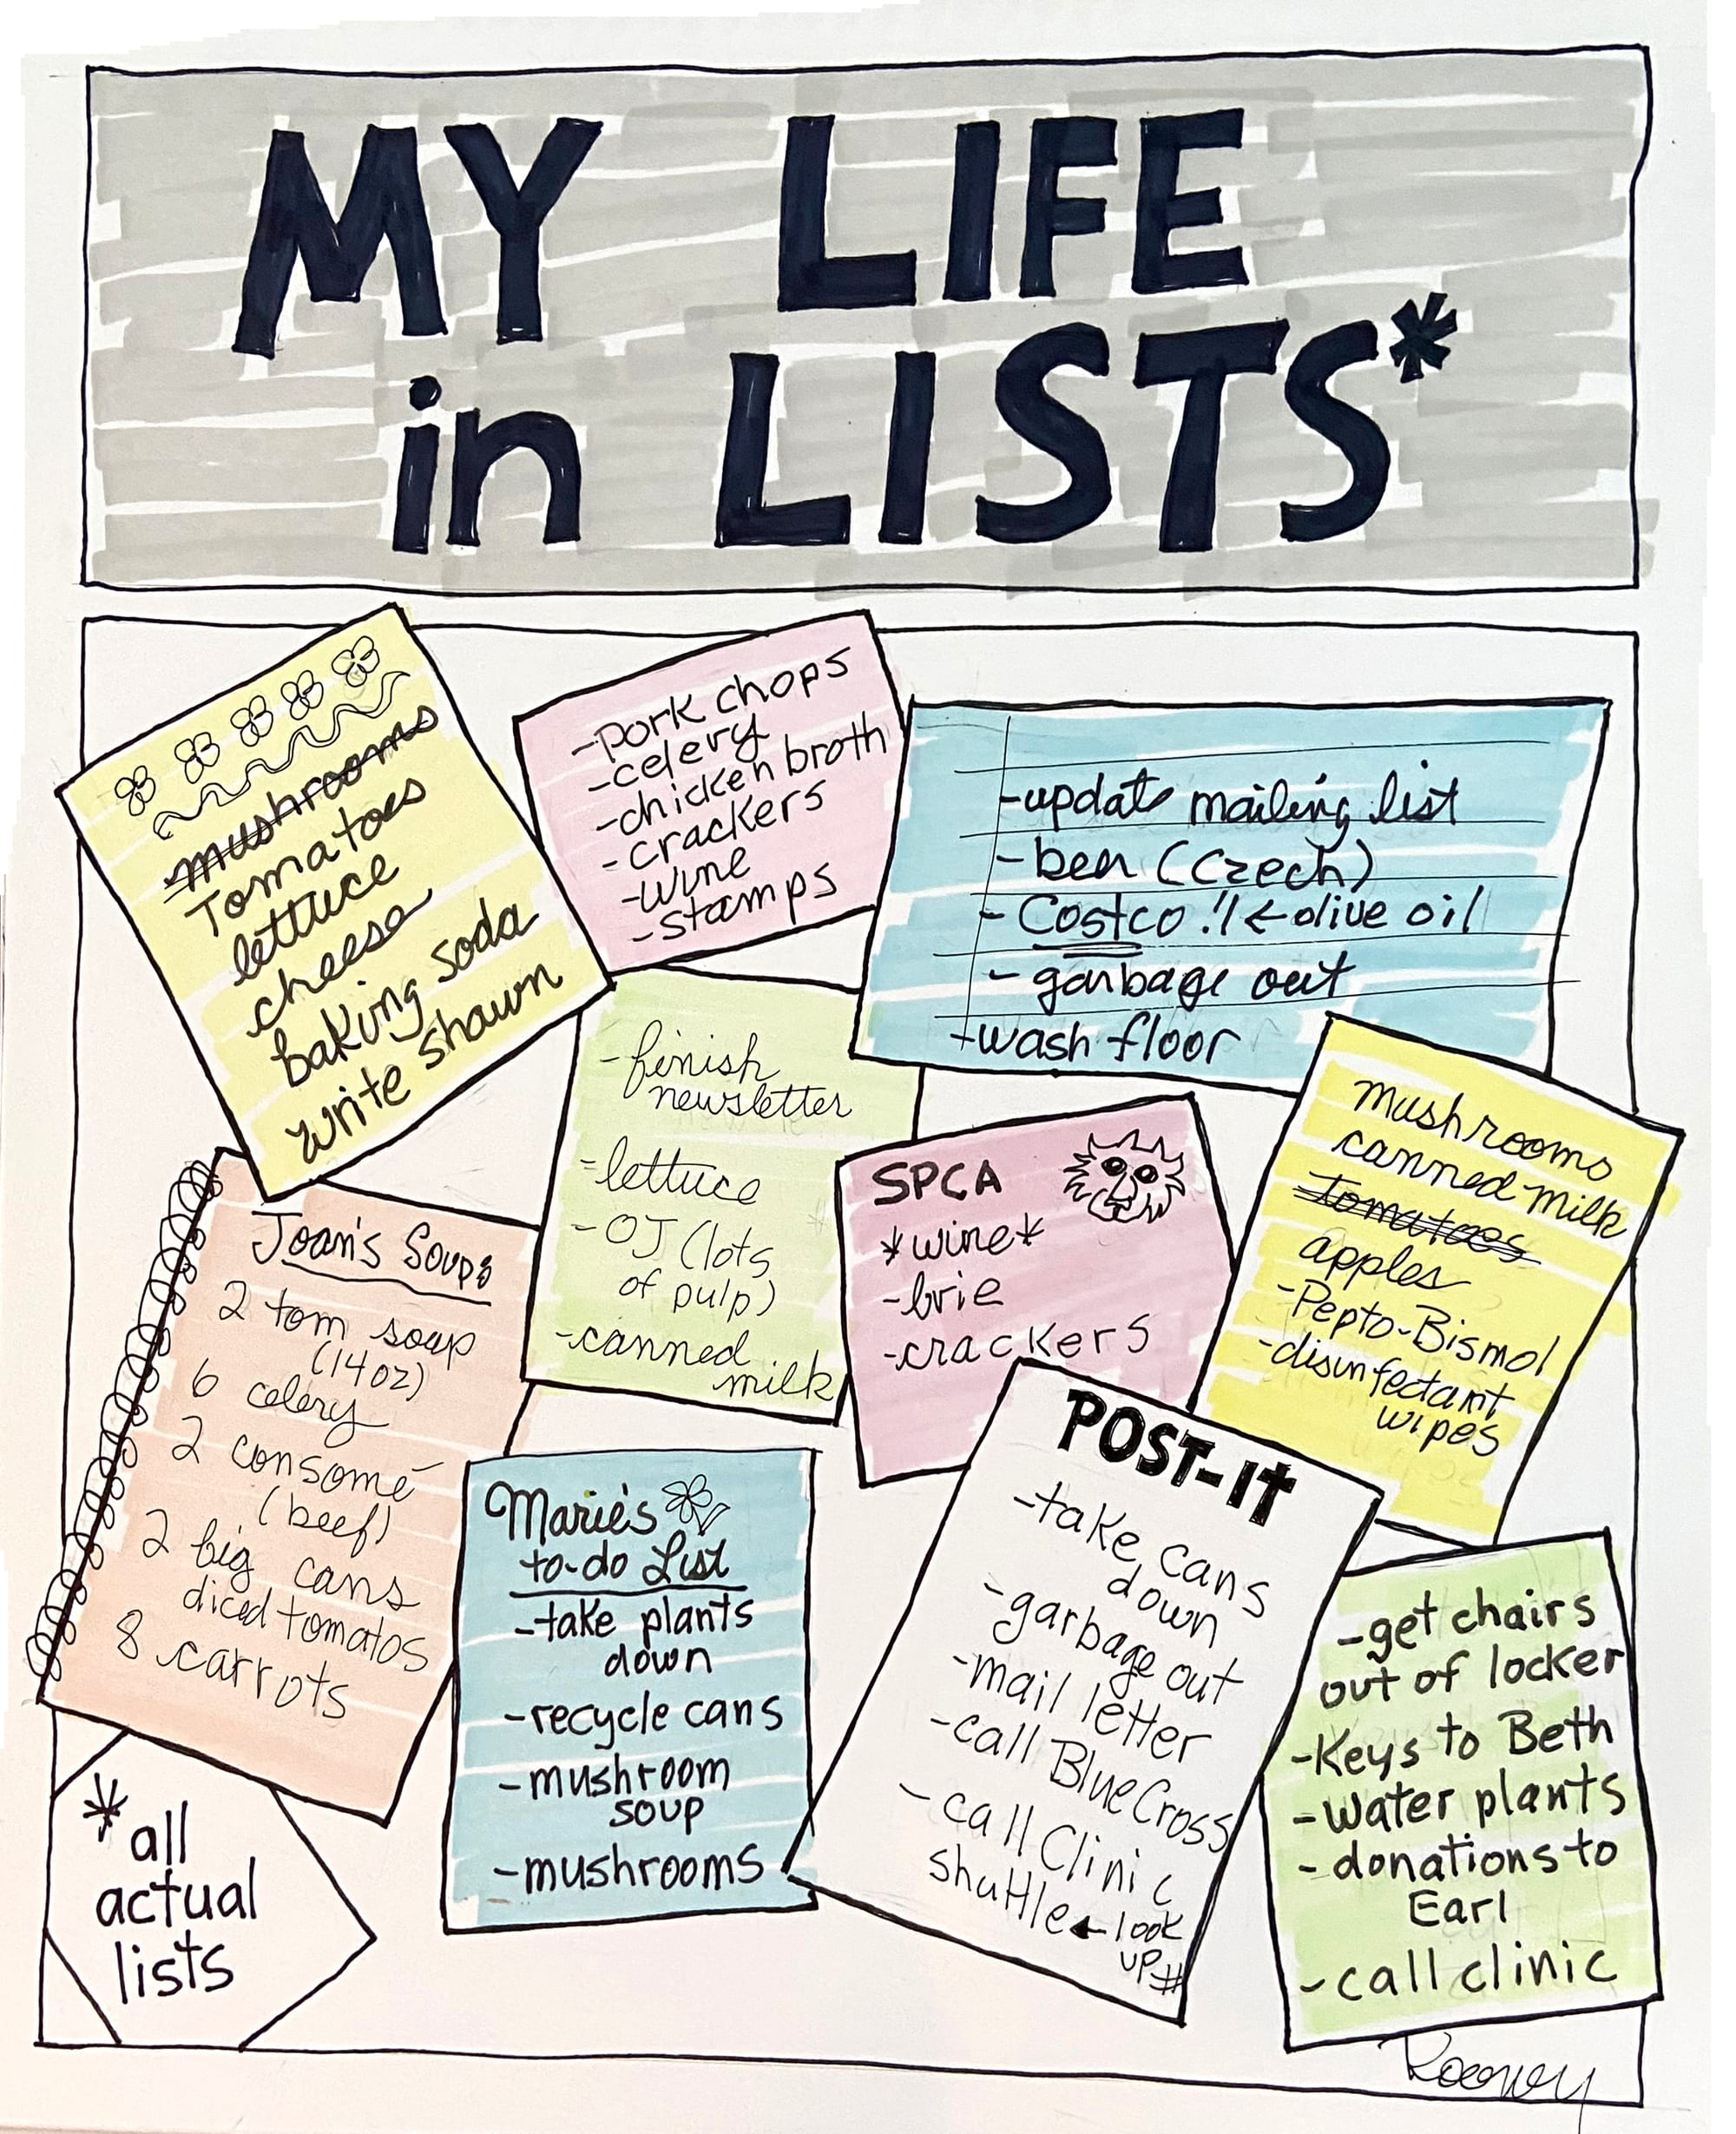 MY LIFE
in LISTS*
mushrooms
Tomatoes
lettuce
cheese
baking soda
write shawn
-pork chops
-celery
-chicken broth
-crackers
-wine
-stamps
-update mailing list
-beer (Czech)
-Costco!! ← olive oil
-garbage out
-wash floor
-finish
newsletter
-lettuce
-OJ (lots
of pulp)
-canned
milk
SPCA
*wine*
-brie
-crackers
mushrooms
canned milk
tomatoes
apples
-Pepto-Bismol
-disinfectant
wipes
Joan's Soups
2 tom soup
(14oz)
6 celery
2 consomé
(beef)
2 big cans
diced tomatos
8 carrots
Marie's
to-do List
-take plants
down
-recycle cans
-mushroom
soup
-mushrooms
POST-it
-take cans
down
-garbage out
-mail letter
-call Blue Cross
-call Clinic
shuttle ← look
up #
-get chairs
out of locker
-Keys to Beth
-water plants
-donations to
Earl
-call clinic
*all
actual
lists